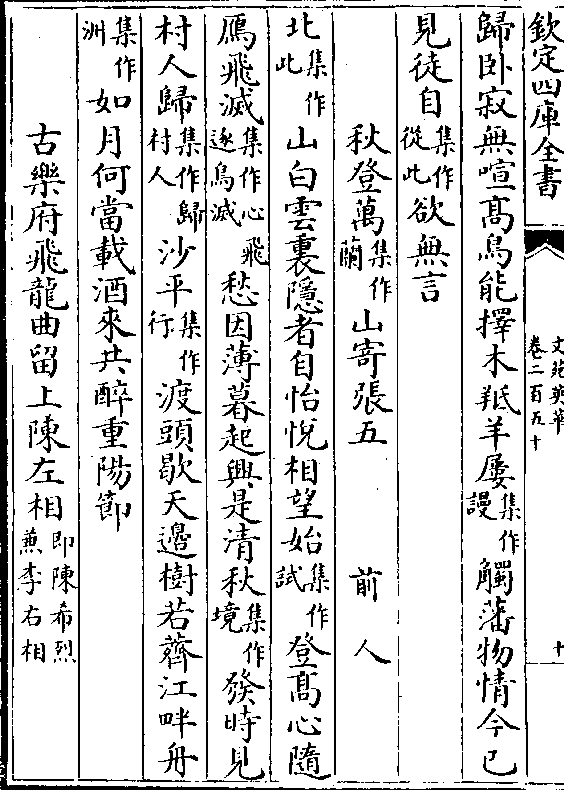 欽定四庫全書
文苑英華
卷二百五十
十
歸卧寂無喧髙鳥能擇木羝羊屢集作謾觸藩物情今已
見徒自集作從此欲無言
秋登萬集作蘭山寄張五 前人
北集作此山白雲裏隱者自怡悦相望始集作試登髙心隨
鴈飛滅集作心飛逐鳥滅愁因薄暮起興是清秋集作境發時見
村人歸集作歸村人沙平集作行渡頭歇天邊樹若薺江畔舟
集作洲如月何當載酒來共醉重陽節
古樂府飛龍曲留上陳左相即陳希烈兼李右相